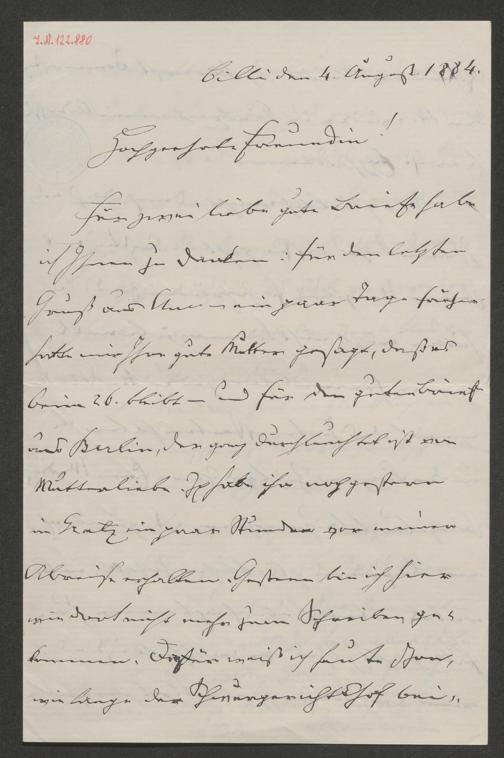 I.N. 122.880
Cilli den 4. August 1884.
Hochgeehrte Freundin!
Für zwei liebe gute Briefe habe
ich Ihnen zu danken: für den letzten
Gruß aus ein paar Tage früher
hatte mir Ihre gute Mutter gesagt, daß es
beim 26. bleibt – und für den guten Brief
aus Berlin, der ganz durchleuchtet ist von
Mutterliebe. Ich habe ihn noch gestern
in Gratz ein paar Stunden vor meiner
Abreise erhalten. Gestern bin ich hier
wie dort nicht mehr zum Schreiben ge-
kommen. Dafür weiß ich heute schon,
wie lange der Schwurgerichtshof bei-